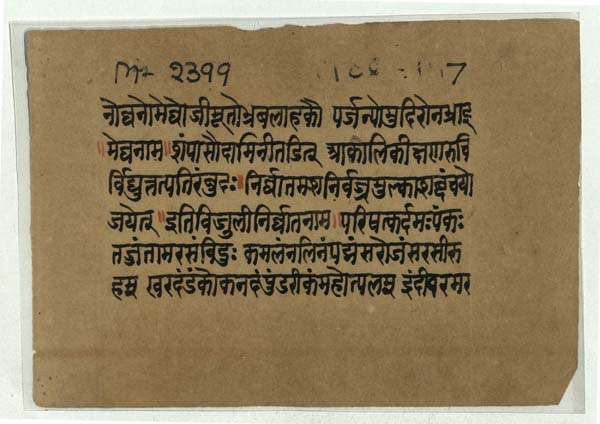 2399 7
नोघनोमेघोजीमूतोभ्रबलाहकौ पर्जन्योमुदिरोनभ्राड्
मेघनाम॥शंपासौदामिनीतडित् आकालिकीक्षणरुचि
र्विद्युत्पतिरंबुदः॥निर्घातमशनिर्वज्रमुल्काशब्दंचयो
जयेत्॥इतिविजुलीनिर्घातनाम॥परिषत्कर्दमःपंकः
तज्जंतामरसंविदुः कमलंनलिनंपद्मंसरोजंसरसीरु
हम् खरदंडंकोकनदंपुंडरीकंमहोत्पलम् इंदीवरमर